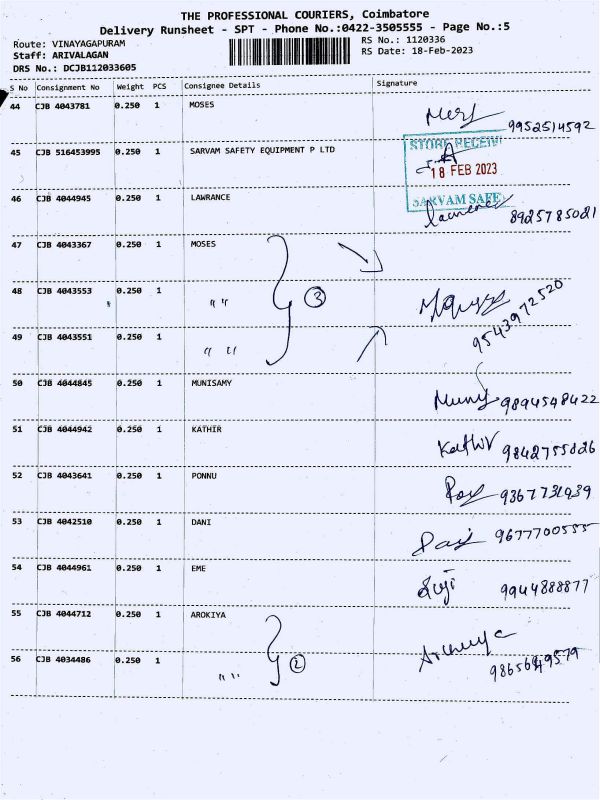 THE PROFESSIONAL COURIERS, Coimbatore
Delivery Runsheet - SPT - Phone No.:0422-3505555 - Page No.:5
Route: VINAYAGAPURAM RS No.: 1120336
Staff: ARIVALAGAN RS Date: 18-Feb-2023
DRS No.: DCJB112033605
S No Consignment No Weight PCS Consignee Details Signature
44 CJB 4043781 0.250 1 MOSES
9952514592
45 CJB 516453995 0.250 1 SARVAM SAFETY EQUIPMENT P LTD
STORE RECEIV
18 FEB 2023
SARVAM SAFE
46 CJB 4044945 0.250 1 LAWRANCE
8925785021
47 CJB 4043367 0.250 1 MOSES
48 CJB 4043553 0.250 1 " " 3
9543972520
49 CJB 4043551 0.250 1 " "
50 CJB 4044845 0.250 1 MUNISAMY
9894548422
51 CJB 4044942 0.250 1 KATHIR Kathir 9842755826
52 CJB 4043641 0.250 1 PONNU
53 CJB 4042510 0.250 1 DANI 9677700555
54 CJB 4044961 0.250 1 EME Suji 9944888877
55 CJB 4044712 0.250 1 AROKIYA
56 CJB 4034486 0.250 1 " " 2